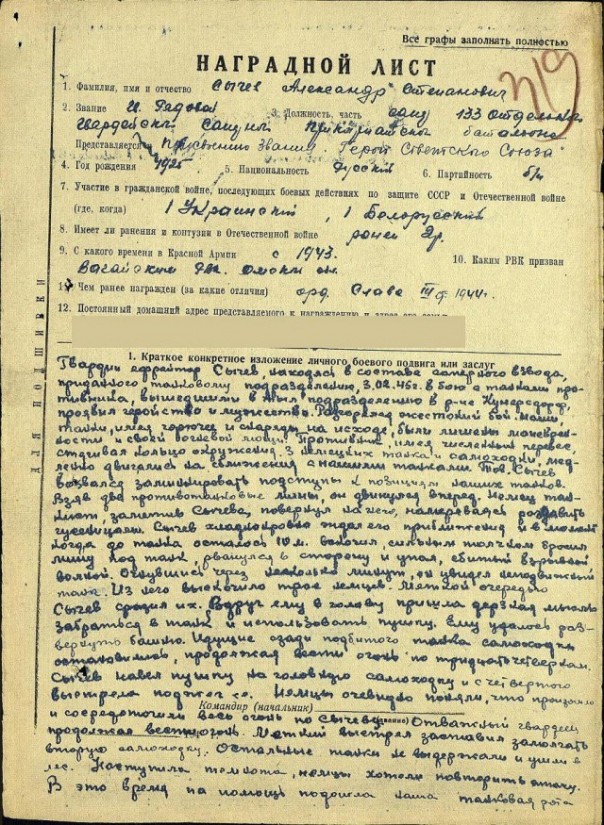 Все графы заполнять полностью
319
НАГРАДНОЙ ЛИСТ
1. Фамилия, имя и отчество Сычев Александр Степанович
2. Звание Гв. Рядовой 3. Должность, часть сапер 133 отдельного
гвардейского Саперного Прикарпатского батальона
Представляется к присвоению звания „Герой Советского Союза"
4. Год рождения 1925 5. Национальность Русский 6. Партийность б/п
7. Участие в гражданской войне, последующих боевых действиях по защите СССР и Отечественной войне
(где, когда) 1 Украинский, 1 Белорусский
8. Имеет ли ранения и контузии в Отечественной войне ранен
9. С какого времени в Красной Армии с 1943. 10. Каким РВК призван
Вагайским Рвк. Омской
11. Чем ранее награжден (за какие отличия) орд. Слава III 1944г.
12. Постоянный домашний адрес представляемого к награждению и адрес его семьи
1. Краткое конкретное изложение личного боевого подвига или заслуг
Гвардии ефрейтор Сычев, находясь в составе саперного взвода,
приданного танковому подразделению, 3.02.45г. в бою с танками про-
тивника, вышедшими в тыл подразделению в р-не Кунерсдорф,
проявил геройство и мужество. Разгорелся жестокий бой. Наши
танки, имея горючее и снаряды на исходе, были лишены маневрен-
ности и своей огневой мощи. Противник, имея численный перевес,
стягивал кольцо окружения. 3 немецких танка и самоходки, мед-
ленно двигались на сближения с нашими танками. Тов. Сычев
вызвался заминировать подступы к позициям наших танков.
Взяв два противотанковые мины, он двинулся вперед. Немец тан-
кист, заметив Сычева, повернул на него, намереваясь раздавить
гусеницами. Сычев хладнокровно ждал его приближения и в момент
когда до танка осталось 10 м. вскочил, сильным толчком бросил
мину под танк, рванулся в сторону и упал, сбитый взрывной
волной. Очнувшись через несколько минут, он увидел неподвижный
танк. Из него выскочило трое немцев. Меткой очередью
Сычев сразил их. Вдруг ему в голову пришла дерзкая мысль
забраться в танк и использовать пушку. Ему удалось раз-
вернуть башню. Идущие сзади подбитого танка самоходки
остановились, продолжая вести огонь по тридцатьчетверкам.
Сычев навел пушку на головную самоходку и с четвертого
выстрела поджег ее. Немцы очевидно поняли, что произошло
Командир (начальник)
и сосредоточили весь огонь по Сычеву. Отважный гвардеец
продолжал вести огонь. Меткий выстрел заставил замолчать
вторую самоходку. Остальные танки не выдержали и ушли в
лес. Наступила темнота, немцы хотели повторить атаку.
В это время на помощь подошла наша танковая рота
ДЛЯ ПОДШИВКИ